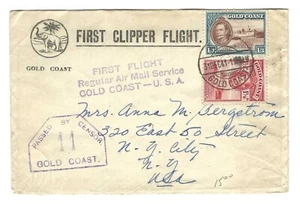 FIRST CLIPPER FLIGHT.
GOLD COAST
FIRST FLIGHT
Regular Air Mail Service
GOLD COAST - U.S.A.
GOLD COAST
1/3 1/3
PASSED BY CENSOR
11
GOLD COAST.
Mrs. Anna M. Bergstrom
320 East 50 Street
N.Y. City
N.Y.
USA
15⁰⁰